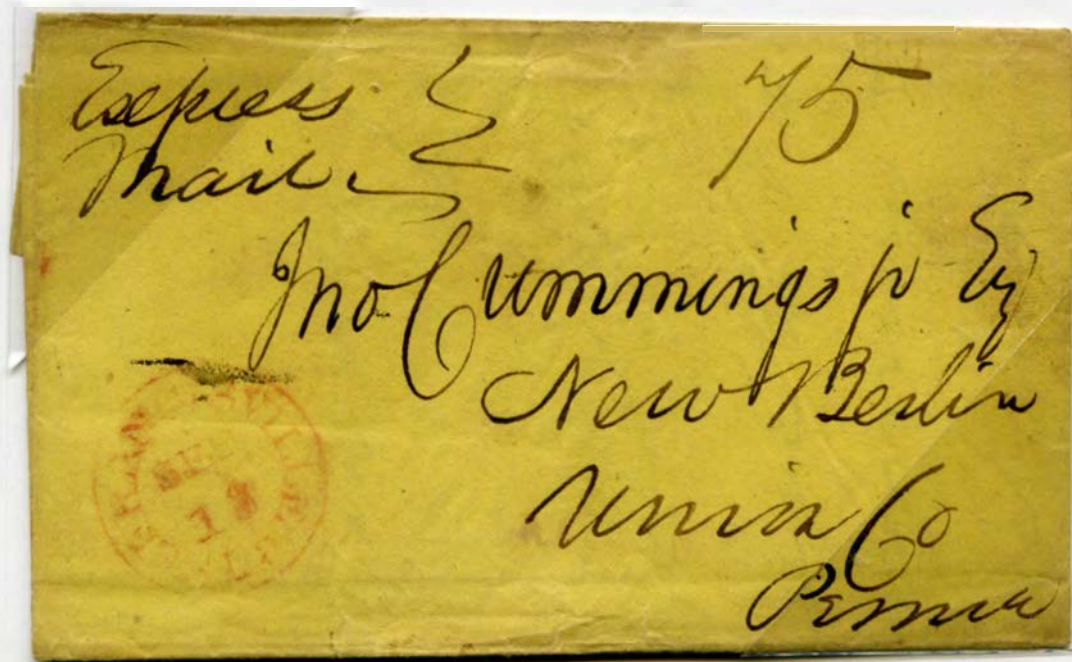 Express
Mail
75
Jno Cummings jr Esq
New Berlin
Union Co
Penna
SEP
18